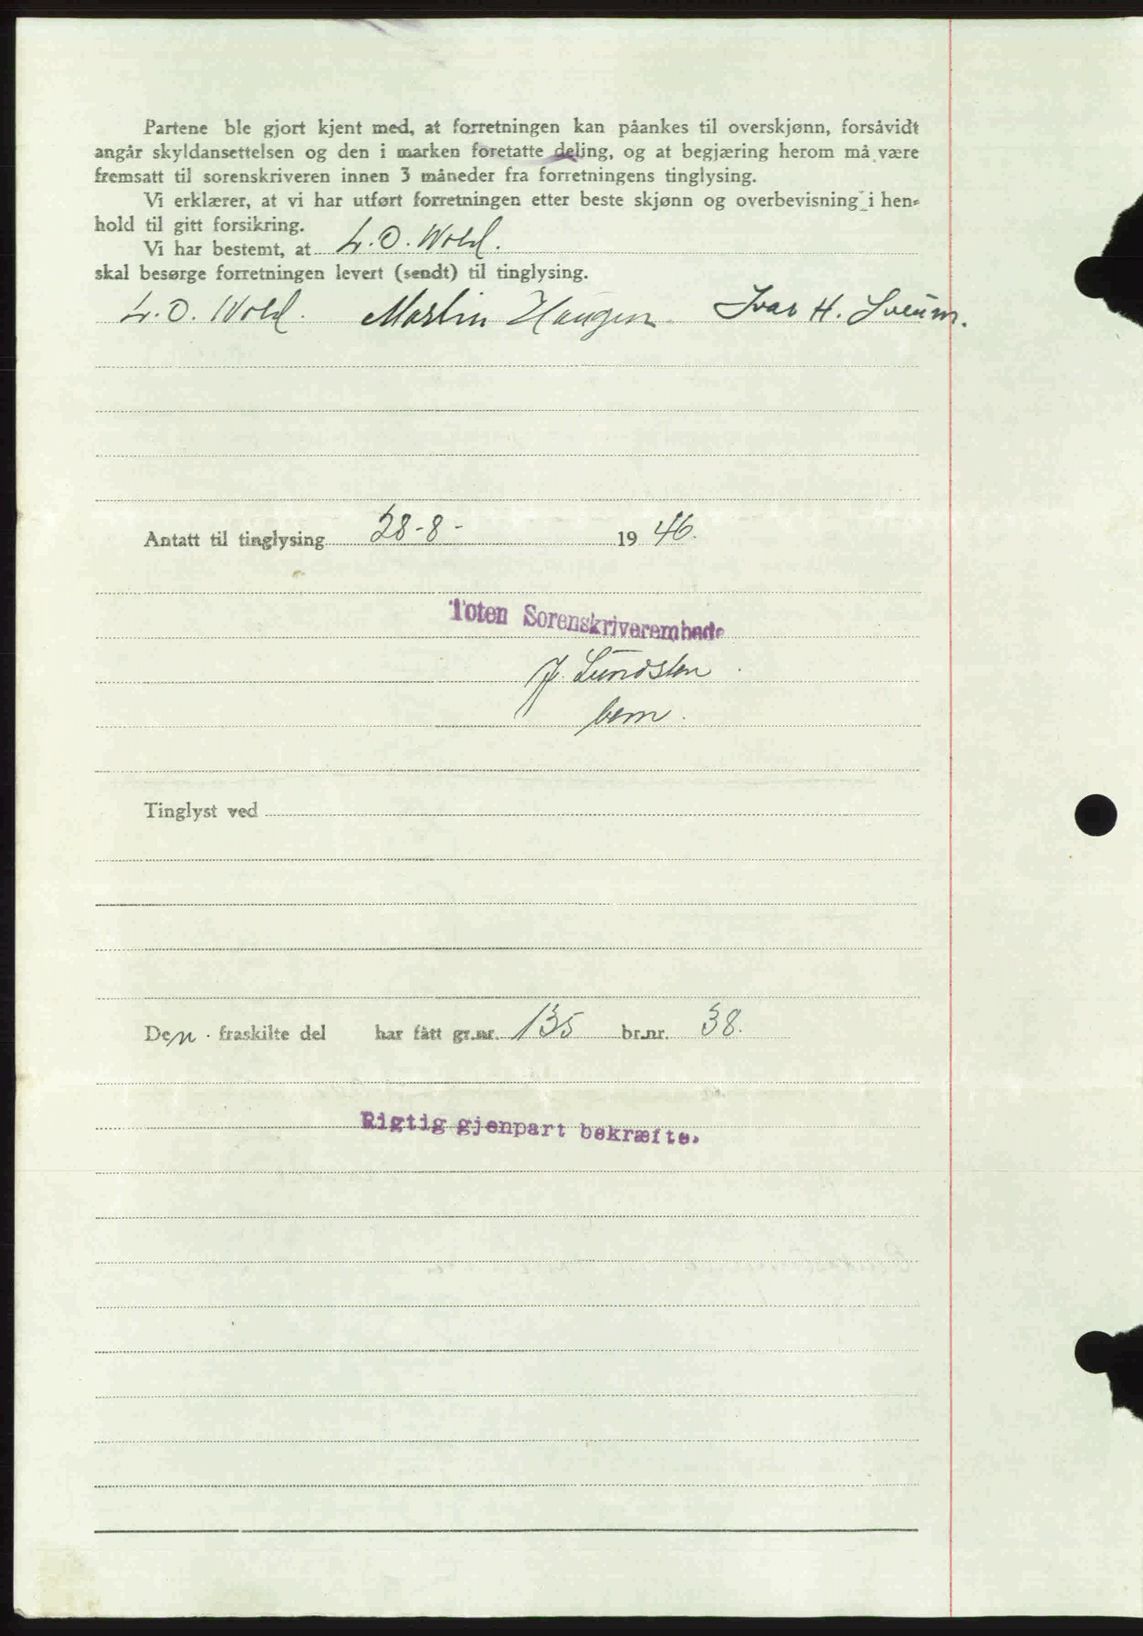 Partene ble gjort kjent med, at forretningen kan påankes til overskjønn, forsåvidt
angår skyldansettelsen og den i marken foretatte deling, og at begjæring herom må være
fremsatt til sorenskriveren innen 3 måneder fra forretningens tinglysing.
Vi erklærer, at vi har utført forretningen etter beste skjønn og overbevisning i hen-
hold til gitt forsikring.
Vi har bestemt, at L. O. Wold.
skal besørge forretningen levert (sendt) til tinglysing.
L. O. Wold. Martin Haugen. Ivar H. Sveum.
Antatt til tinglysing 28-8- 1946.
Toten Sorenskriverembede
J. Lundsten
bem.
Tinglyst ved
Den fraskilte del har fått gr.nr. 135 br.nr. 38.
Rigtig gjenpart bekræfte.